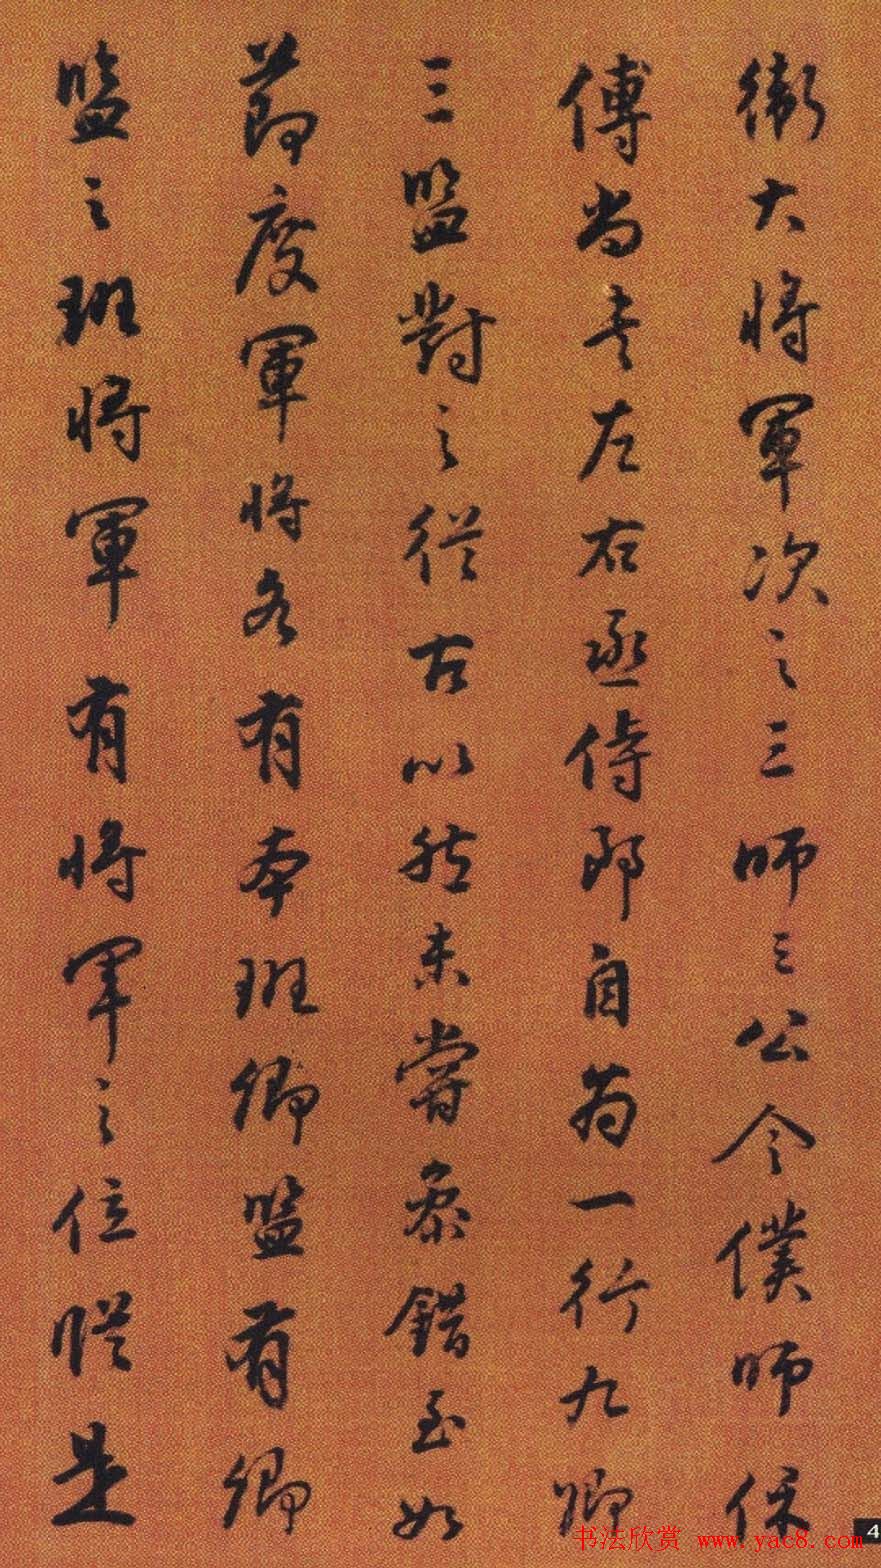 衛大將軍次之三師三公令僕師保
傅尚書左右丞侍郎自為一行九卿
三監對之從古以然未嘗參錯至如
節度軍將各有本班卿監有卿
監之班將軍有將軍之位縱是
书法欣赏 www.yac8.com
4